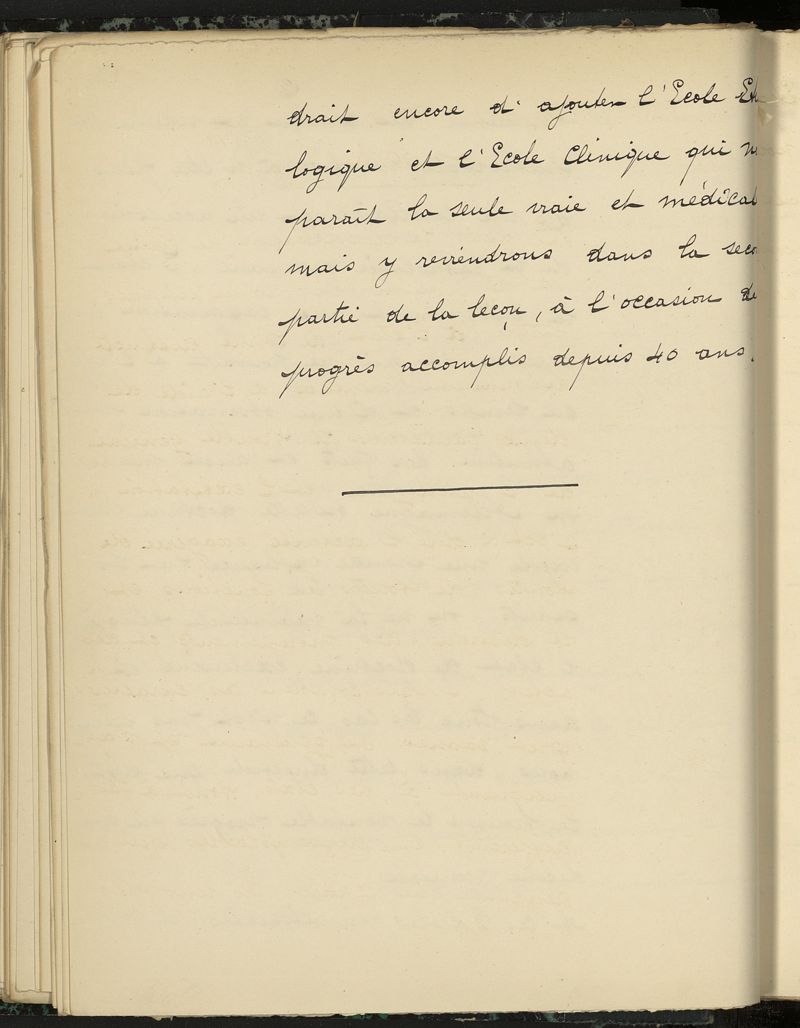 drait encore d'ajouter l'Ecole Et
logique et l'Ecole Clinique qui
paraît la seule vraie et médical
mais y reviendrons dans la seco
partie de la leçon, à l'occasion de
progrès accomplis depuis 40 ans.